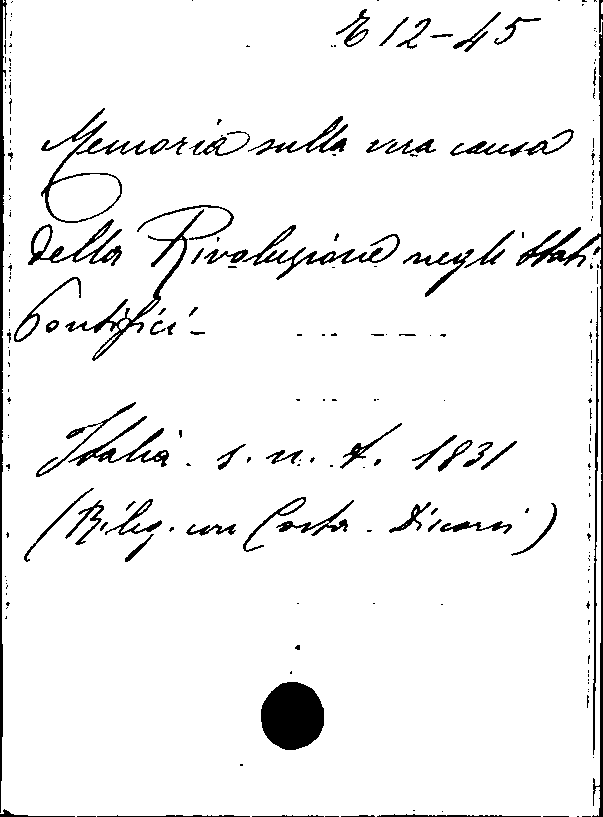 E 12-45
Memoria sulla vera causa
della Rivoluzione negli Stati
Pontifici -
Italia. s. n. t. 1831
(Rileg. con Costa - Discorsi)